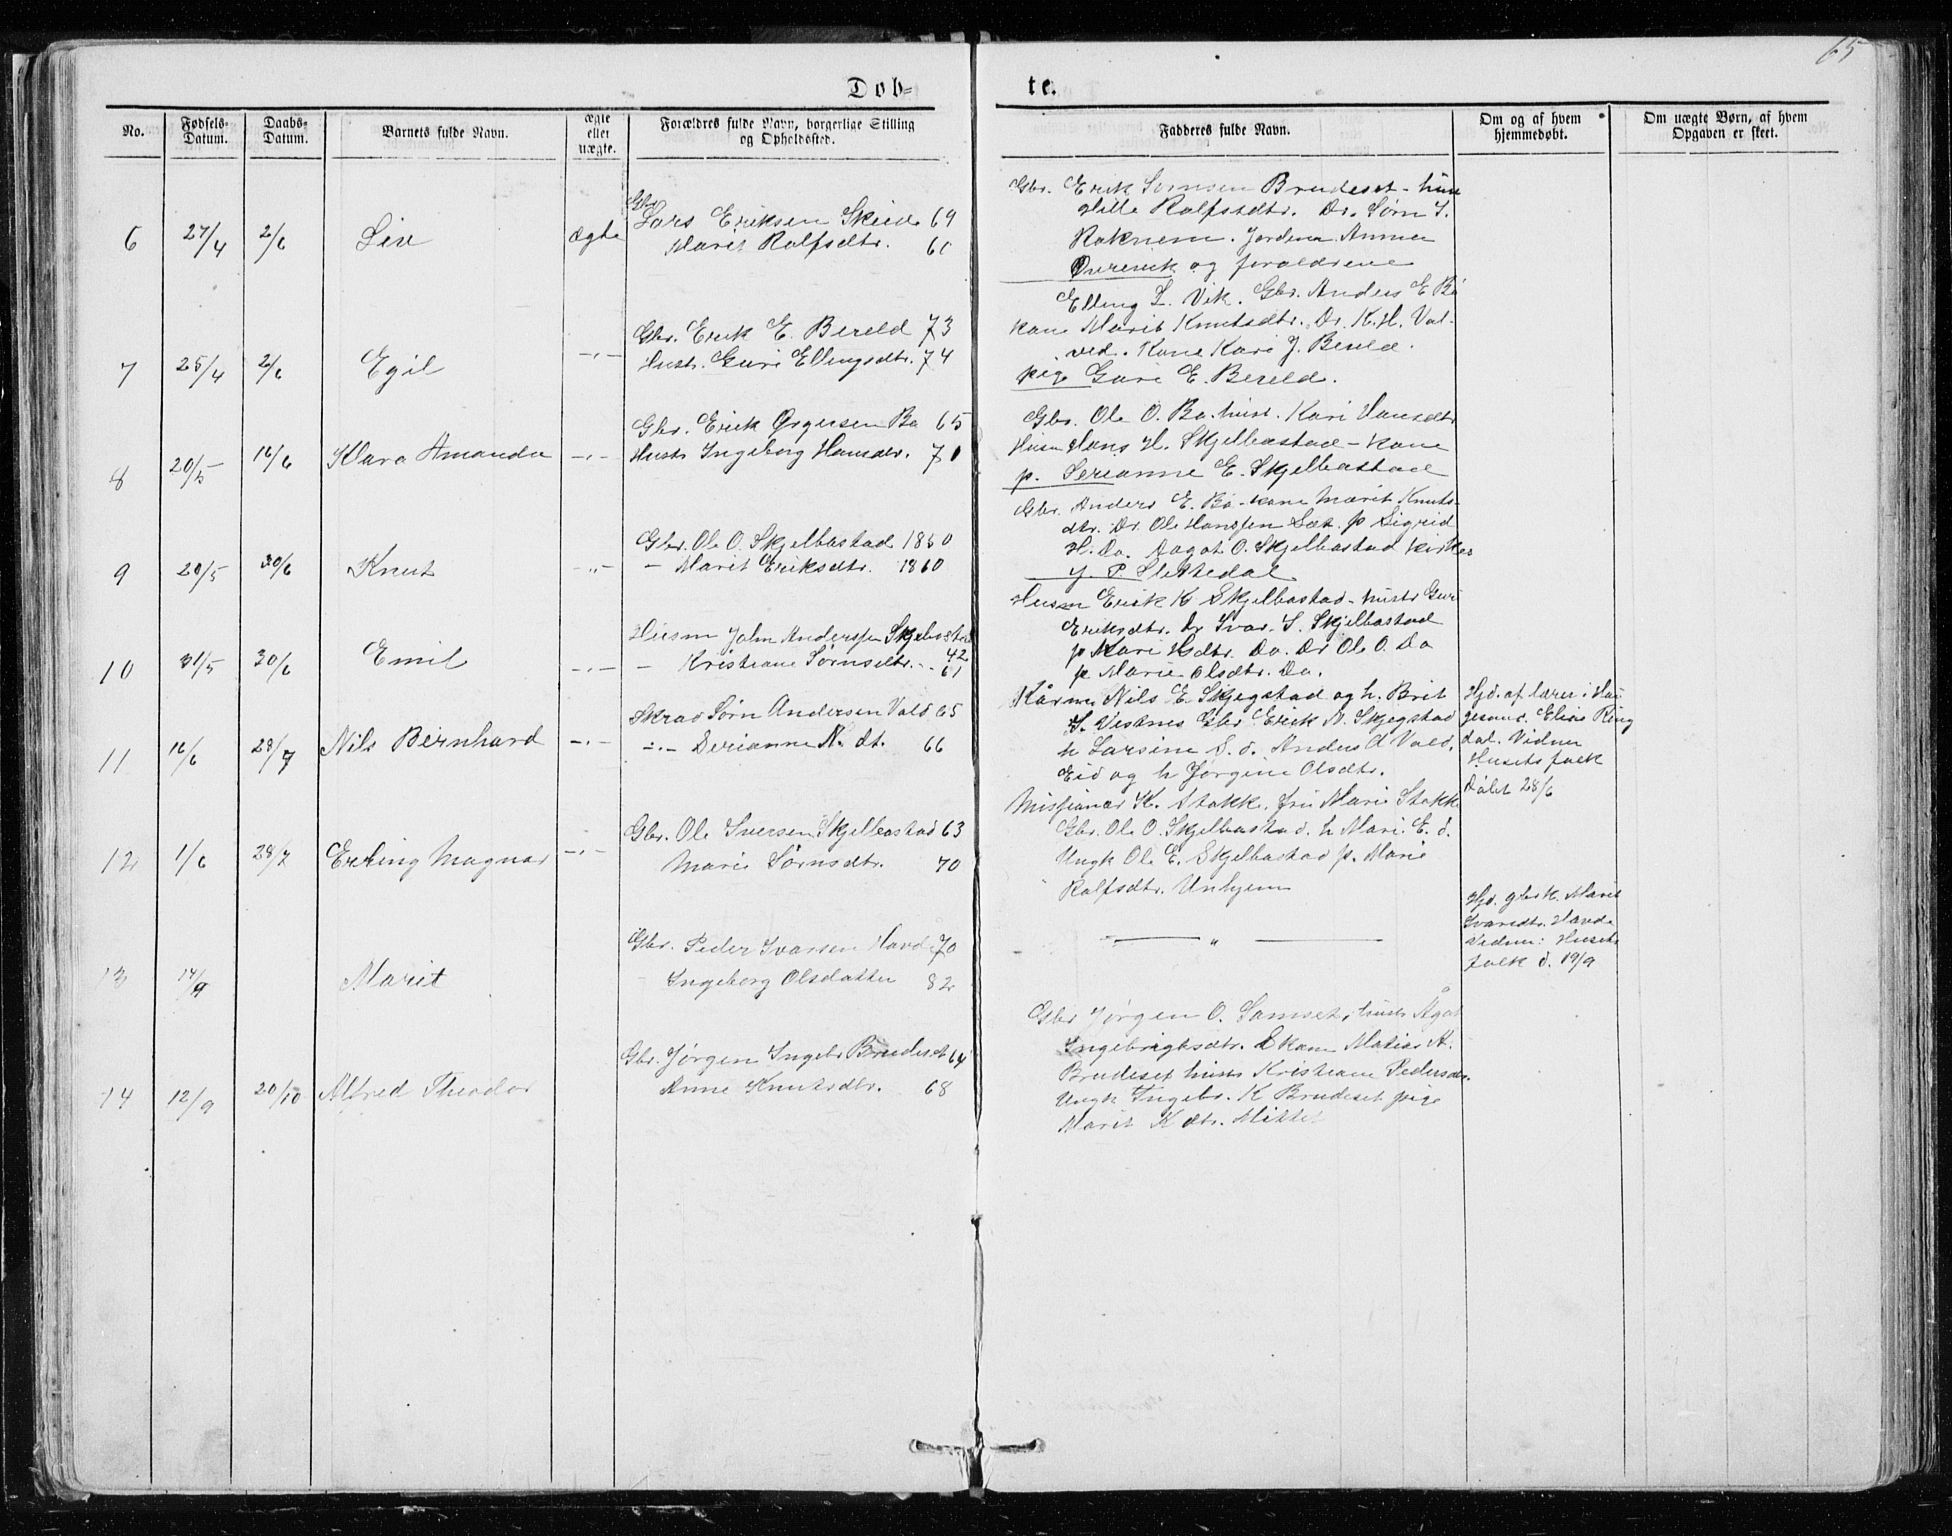 65
Døb= te.
No.
Fødsels-
Datum.
Daabs-
Datum.
Barnets fulde Navn.
ægte
eller
uægte.
Forældres fulde Navn, borgerlige Stilling
og Opholdssted.
Fadderes fulde Navn.
Om og af hvem
hjemmedøbt.
Om uægte Børn, af hvem
Opgaven er skeet.
6 27/4 2/6 Liv ægte
Gbr.
Lars Eriksen Skeid 69
Marit Rolfsdtr. 60
Gbr. Erik Sørnsen Brudeset - hus
Rolfsdtr. Dr. Sørn S.
Raknem. Jordem. Anna
og forældrene
7 25/4 2/6 Egil -"-
Gbr. Erik E. Bereld 73
Hustr. Guri Ellingsdtr. 74
Elling L. Vik. Gbr. Anders E Bø
kone Marit Knutsdtr. Dr. K. H. Val-
ved. Kone Kari J. Bereld.
pige Guri E. Bereld.
8 20/5 16/6 Klara Amanda -"-
Gbr. Erik Ørgersen Bø 65
Hustr Ingeborg Hansdtr. 71
Gbr. Ole O. Bø. hust. Kari Hansdtr
Husm Hans H. Skjelbostad - kone
p. Serianne E. Skjelbostad
9 20/5 30/6 Knut -"-
Gbr. Ole O. Skjelbostad 1860
- Marit Eriksdtr. 1860
Gbr. Anders E. Bø - kone Marit Knuts-
dtr. Dr. Ole Hanssen Sæt. p Sigrid
H. Do. Aagot O. Skjelbostad kirkes
P. Slettedal
10 31/5 30/6 Emil -"-
Husm John Anderssen Skjelbostad
42
- Kristiane Sørnsdtr. - 61
Husm Erik K Skjelbostad - hustr Guri
Eriksdtr. Dr Ivar S. Skjelbostad
p Kari Hdtr. Do. Dr Ole O. Do
p Marie Olsdtr. Do.
11 16/6 28/7 Nils Bernhard -"-
Skræd Sørn Andersen Vold 65
-"- Serianne N. dt. 66
Kårm Nils E. Skjegstad og h. Brit
S. Vestnes Gbr. Erik N. Skjegstad
h Larsine S. d. Anders A Vold,
Eid og h Jørgine Olsdtr.
Hjd. af lærer i Hau
gesund. Elias Ring
dal. Vidner
Husets folk
Døbt 28/6
12 1/6 28/7 Erling Magnar -"-
Gbr. Ole Iversen Skjelbostad 63
Marie Sørnsdtr. 70
Missionær K. Stokke. fru Marie Stokke
Gbr. Ole O. Skjelbostad. h Mari. E. d.
Ungk Ole E. Skjelbostad p. Marie
Rolfsdtr. Unhjem
13 17/9 Marit
Gbr. Peder Ivarsen Havde 70
Ingeborg Olsdatter 82
— " —
Hjd. gbrk. Marit
Ivarsdtr. Havde
Vidner: Husets
folk d. 19/9
14 12/9 20/10 Alfred Theodor
Gbr. Jørgen Ingebr Brudeset 64
Anne Knutsdtr. 68
Gbr Jørgen O. Samset, hustr Ågot
Ingebrigtsdtr. Matias A.
Brudeset hustr Kristiane Pedersdtr.
Ungk Ingebr. K Brudeset pige
Marit K dtr. Mittet